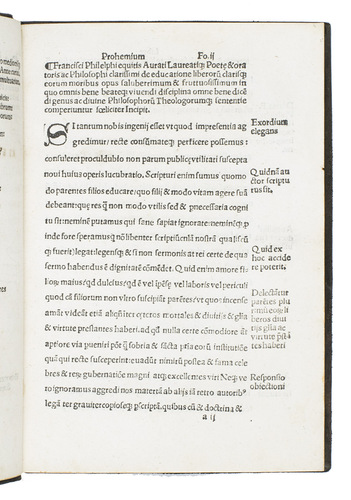 Prohemium Fo.ij
¶Francisci Philelphi equitis Aurati Laureatiq; Poetę & ora
toris ac Philosophi clarissimi de educatione liberorũ clarisq;
eorum moribus opus saluberrimum & fructuosissimum in
quo omnis bene beateq; viuendi disciplina omne bene dice
di genus ac diuine Philosophorũ Theologorumq; sententie
comperiuntur fœliciter Incipit.
SI tantum nobis ingenij esset vt quod impresentia ag
gredimur/ recte consũmateq; perficere possemus:
consuleret proculdubio non parum publicę vtilitati suscepta
noui huius operis lucubratio. Scripturi enim sumus quomo
do parentes filios educare/ quo filij & modo vitam agere suã
debeant: que res q̃ non modo vtilis sed & pnecessaria cogni
tu sit: neminẽ putamus qui sane sapiat ignorate: neminẽq; p
inde fore speramus q̃ nõ libenter scriptiũculã nostrã qualiscũ
q; fuerit legat: legensq; & si non sermonis at rei certe de qua
sermo habendus ẽ dignitatẽ cõmẽdet. Quid enim amore fi
lio₂ maius/ qd dulcius/ qd ẽ vel spẽs vel laboris vel periculi
quod cã filiorum non vltro suscipiãt parẽtes/ vt quos incense
amãt videãt etiã
&
virtute prestantes haberi. ad qd nulla certe cõmodiore at
aptiore via pueniri põt q̃ sobria & sãcta priã eorũ institutiõe
quã qui recte susceperint: euadũt nimirũ postea & fama cele
bres & re₂ gubernatiõe magni atq; excellentes viri Neq; ve
ro ignoramus aggredi nos materiã ab alijs iã retro autorib⁹
legã ter grauiter copioseq; pscriptã. quibus cũ & doctrina &
a ij
Exordium
elegans
Quid nã au
ctor scriptu
rus sit.
Quid ex
hoc accide
re poterit.
Delectãtur
parẽtes plu
beros
virtute
tes haberi
Responsio
obiectioni